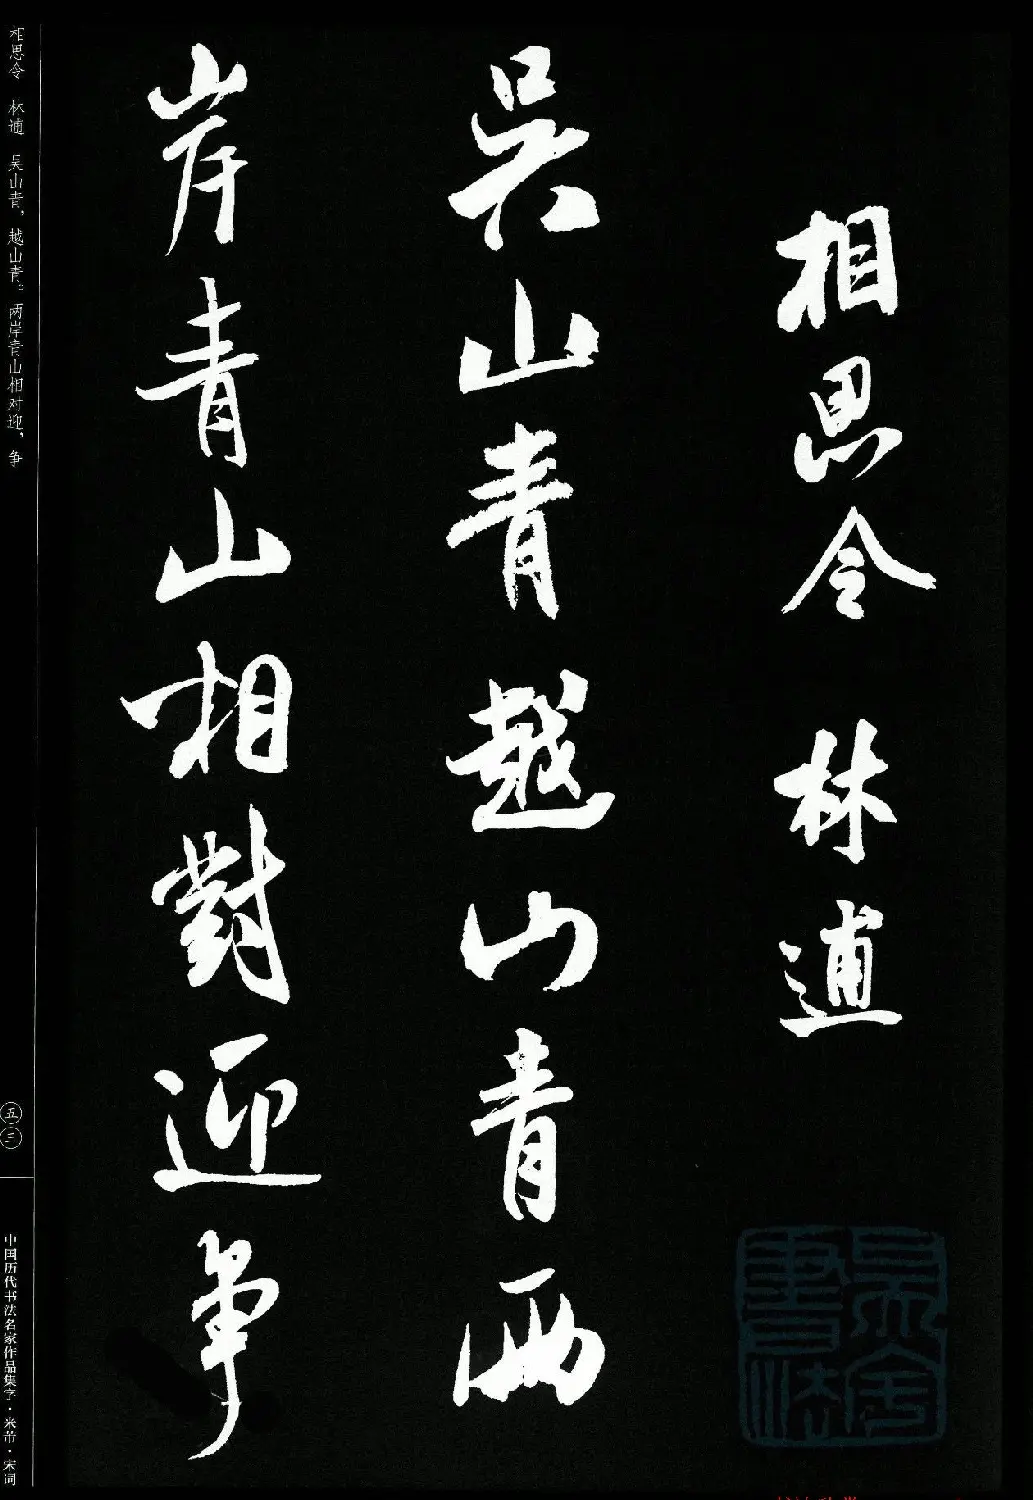 相思令 林逋
吳山青越山青兩
岸青山相對迎爭
相思令 林逋 吴山青，越山青。两岸青山相对迎，争
五三
中国历代书法名家作品集字·米芾·宋词